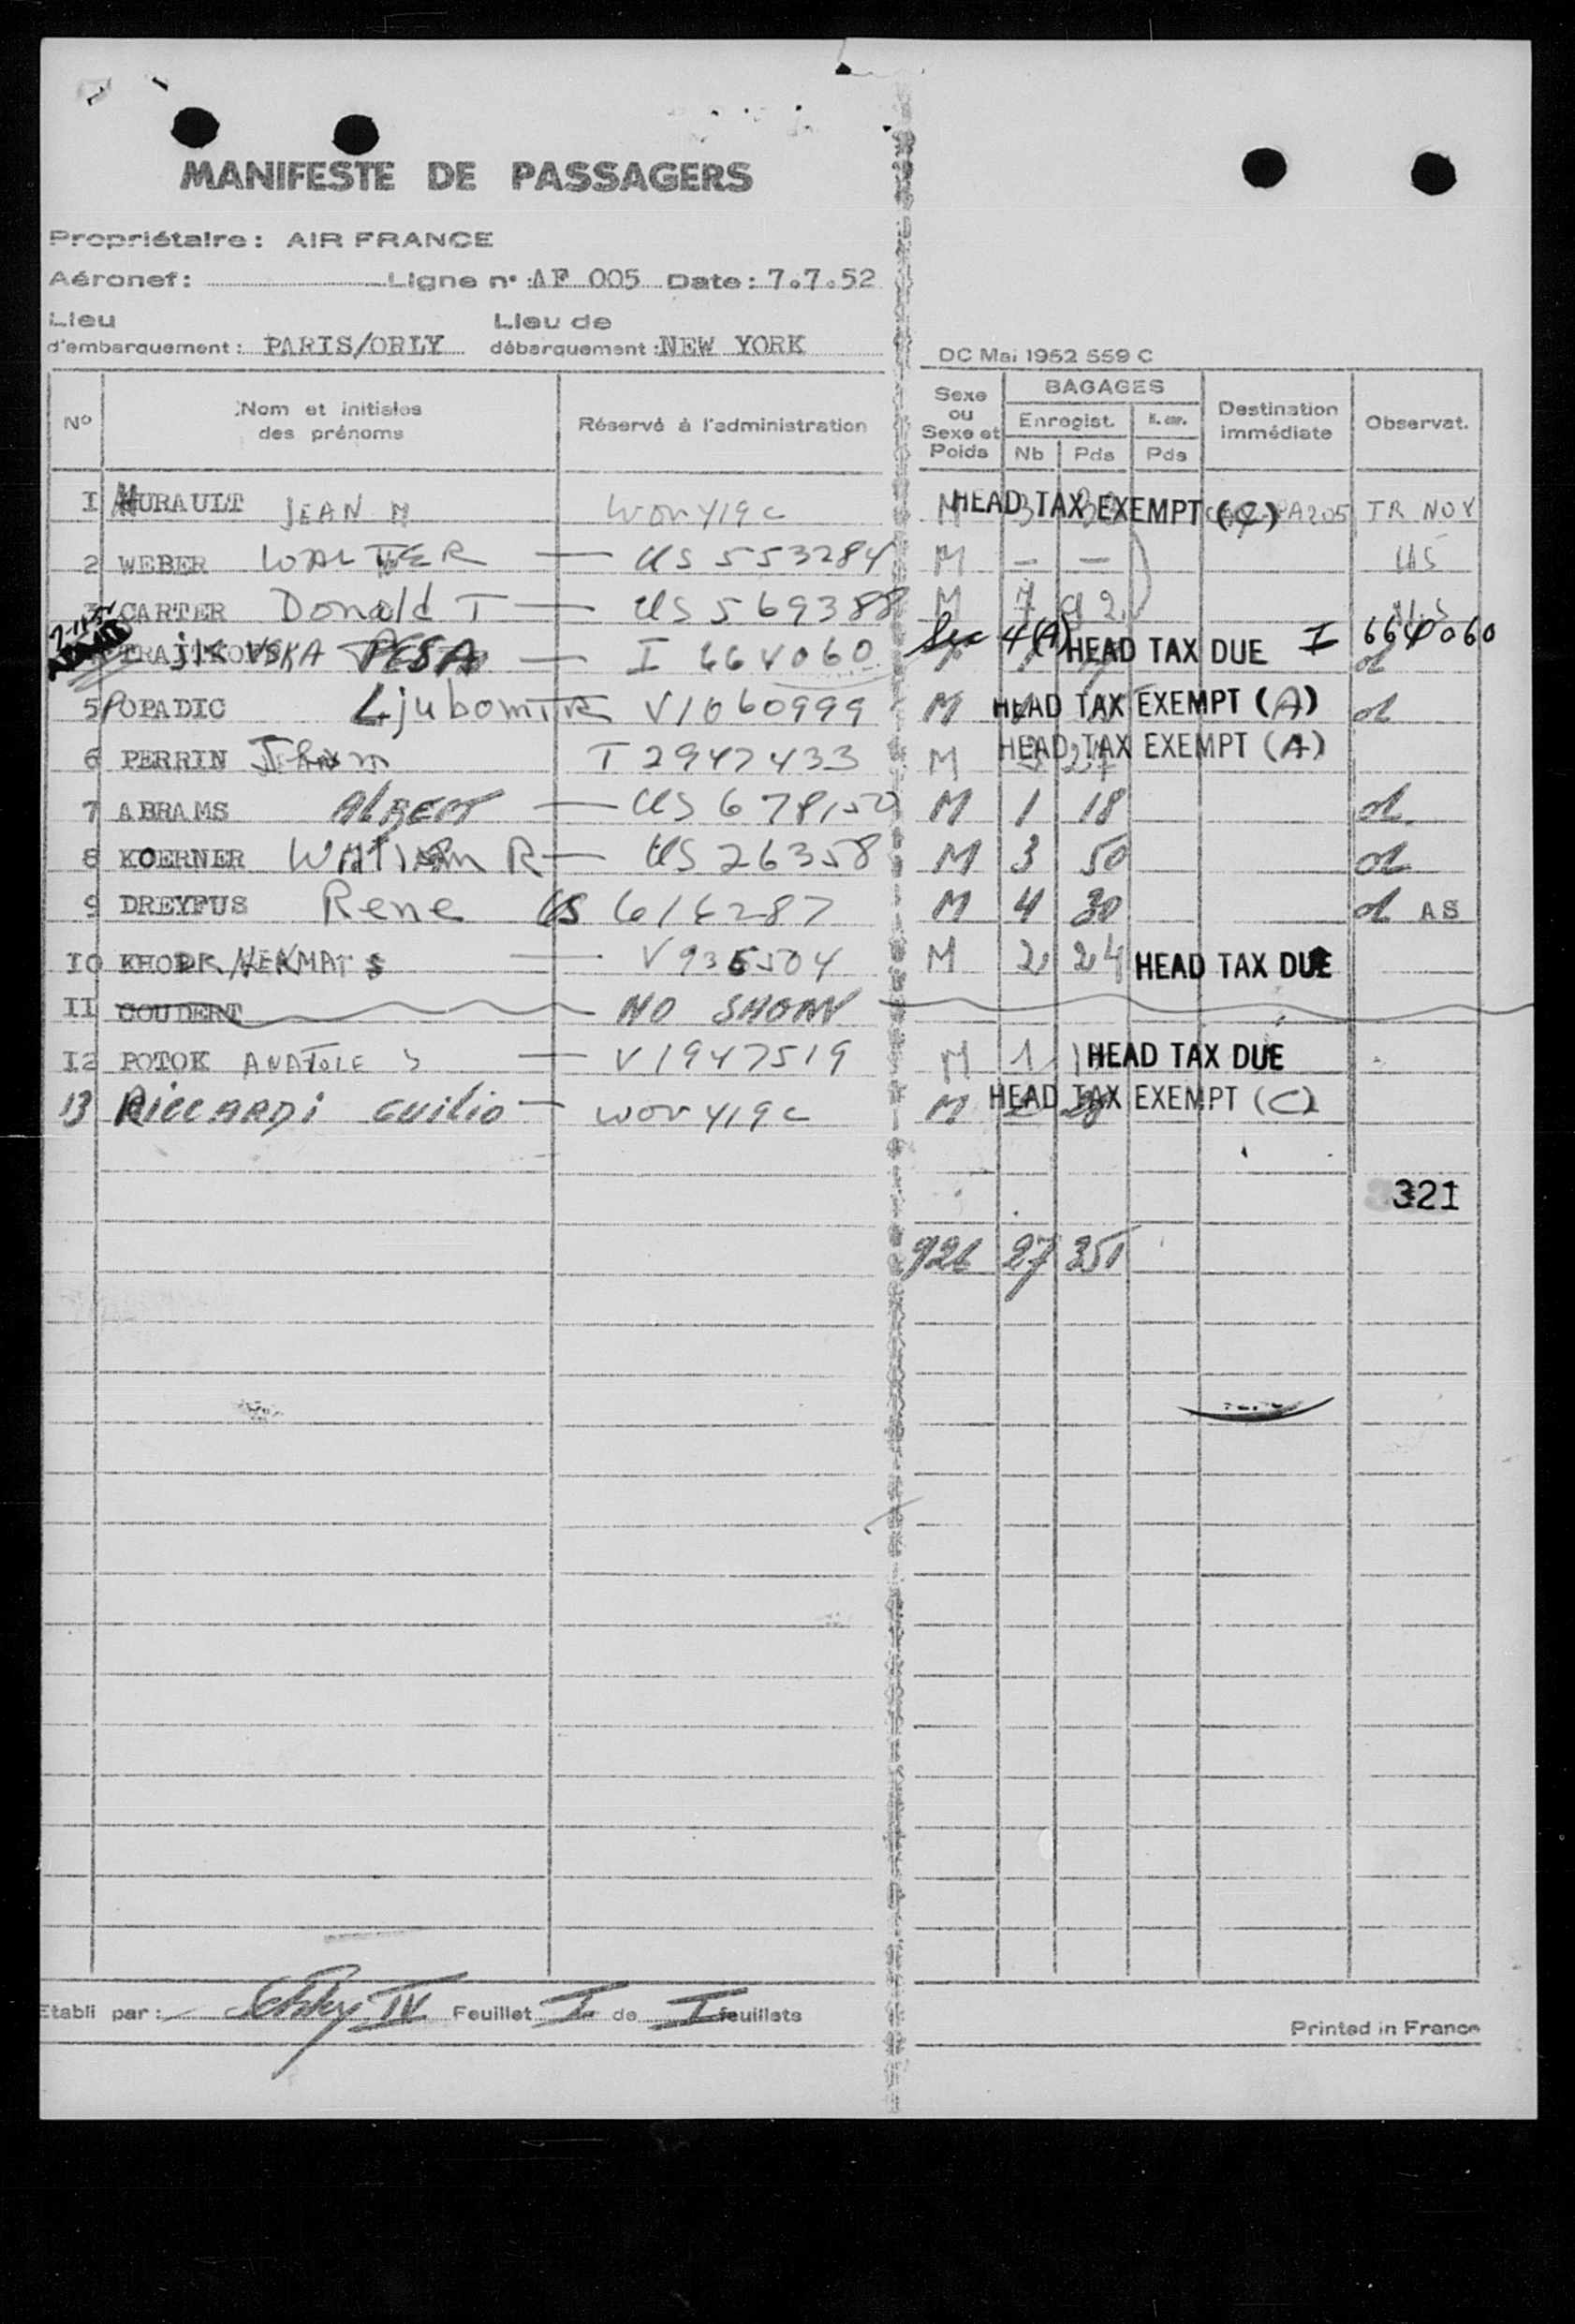 MANIFESTE DE PASSAGERS
Propriétaire: AIR FRANCE
Aéronef: Ligne n° : AF 005 Date: 7.7.52
Lieu d'embarquement: PARIS/ORLY Lieu de débarquement: NEW YORK
DC Mai 1952 559 C
N° Nom et initiales des prénoms Réservé à l'administration Sexe ou Sexe et Poids BAGAGES Enregist. Nb Pds Pds Destination immédiate Observat.
I HURAULT JEAN M M 3 HEAD TAX EXEMPT (C) PA205 TR NOY
2 WEBER WALTER — US 553284 M — — US
3 CARTER Donald T — US 569388 M 7 92
PESA — I 664060 Sec 4(A) HEAD TAX DUE I 664060
5 POPADIC Ljubomir V1060999 M HEAD TAX EXEMPT (A)
6 PERRIN T 2947433 M HEAD TAX EXEMPT (A)
7 ABRAMS Albert — US 678150 M 1 18
8 KOERNER William R — US 26358 M 3 50
9 DREYFUS Rene US 616287 M 4 30 AS
IO KHODR HEKMAT S — V936504 M 2 24 HEAD TAX DUE
II COUDERT NO SHOW
I2 POTOK ANATOLE S — V1947519 M 1 HEAD TAX DUE
13 RiccARDi Guilio — M HEAD TAX EXEMPT (C)
321
926 27 351
Etabli par: IV Feuillet I de I feuillets
Printed in France